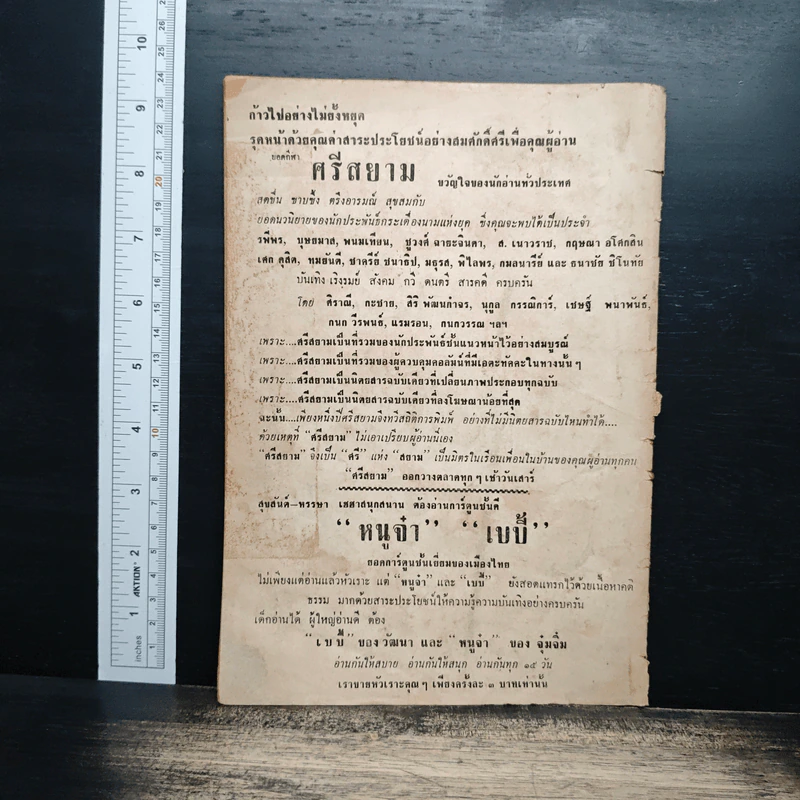 ก้าวไปอย่างไม่ยั้งหยุด
รุดหน้าด้วยคุณค่าสาระประโยชน์อย่างสมศักดิ์ศรีเพื่อคุณผู้อ่าน
ยอดกีฬา ศรีสยาม ขวัญใจของนักอ่านทั่วประเทศ
สดชื่น ซาบซึ้ง ตรึงอารมณ์ สุขสมกับ
ยอดนวนิยายของนักประพันธ์กระเดื่องนามแห่งยุค ซึ่งคุณจะพบได้เป็นประจำ
รพีพร, บุษยมาส, พนมเทียน, ชูวงศ์ ฉายะจินดา, ส. เนาวราช, กฤษณา อโศกสิน
เศก ดุสิต, ทมยันตี, ชาตรีย์ ชนาธิป, มธุรส, พิไลพร, กมลนารีย์ และ ธนาชัย ชิโนทัย
บันเทิง เริงรมย์ สังคม กวี ดนตรี สารคดี ครบครัน
โดย ศิราณี, กะชาย, สิริ พัฒนกำจร, นุกูล กรรณิการ์, เชษฐ์ พนาพันธ์,
กนก วีรพนธ์, แรมรอน, กนกวรรณ ฯลฯ
เพราะ....ศรีสยามเป็นที่รวมของนักประพันธ์ชั้นแนวหน้าไว้อย่างสมบูรณ์
เพราะ....ศรีสยามเป็นที่รวมของผู้ควบคุมคอลัมน์ที่มีเอตะทัคคะในทางนั้น ๆ
เพราะ....ศรีสยามเป็นนิตยสารฉบับเดียวที่เปลี่ยนภาพประกอบทุกฉบับ
เพราะ....ศรีสยามเป็นนิตยสารฉบับเดียวที่ลงโฆษณาน้อยที่สุด
ฉะนั้น....เพียงหนึ่งปีศรีสยามจึงทวีสถิติการพิมพ์ อย่างที่ไม่มีนิตยสารฉบับไหนทำได้....
ด้วยเหตุที่ "ศรีสยาม" ไม่เอาเปรียบผู้อ่านนี่เอง
"ศรีสยาม" จึงเป็น "ศรี" แห่ง "สยาม" เป็นมิตรในเรือนเพื่อนในบ้านของคุณผู้อ่านทุกคน
"ศรีสยาม" ออกวางตลาดทุก ๆ เช้าวันเสาร์
สุขสันต์—หรรษา เฮฮาสนุกสนาน ต้องอ่านการ์ตูนชั้นดี
"หนูจ๋า" "เบบี้"
ยอดการ์ตูนชั้นเยี่ยมของเมืองไทย
ไม่เพียงแต่อ่านแล้วหัวเราะ แต่ "หนูจ๋า" และ "เบบี้" ยังสอดแทรกไว้ด้วยเนื้อหาคติ
ธรรม มากด้วยสาระประโยชน์ให้ความรู้ความบันเทิงอย่างครบครัน
เด็กอ่านได้ ผู้ใหญ่อ่านดี ต้อง
"เบบี้" ของ วัฒนา และ "หนูจ๋า" ของ จุ๋มจิ๋ม
อ่านกันให้สบาย อ่านกันให้สนุก อ่านกันทุก ๑๕ วัน
เราขายหัวเราะคุณ ๆ เพียงครั้งละ ๓ บาทเท่านั้น
AKTION
inches